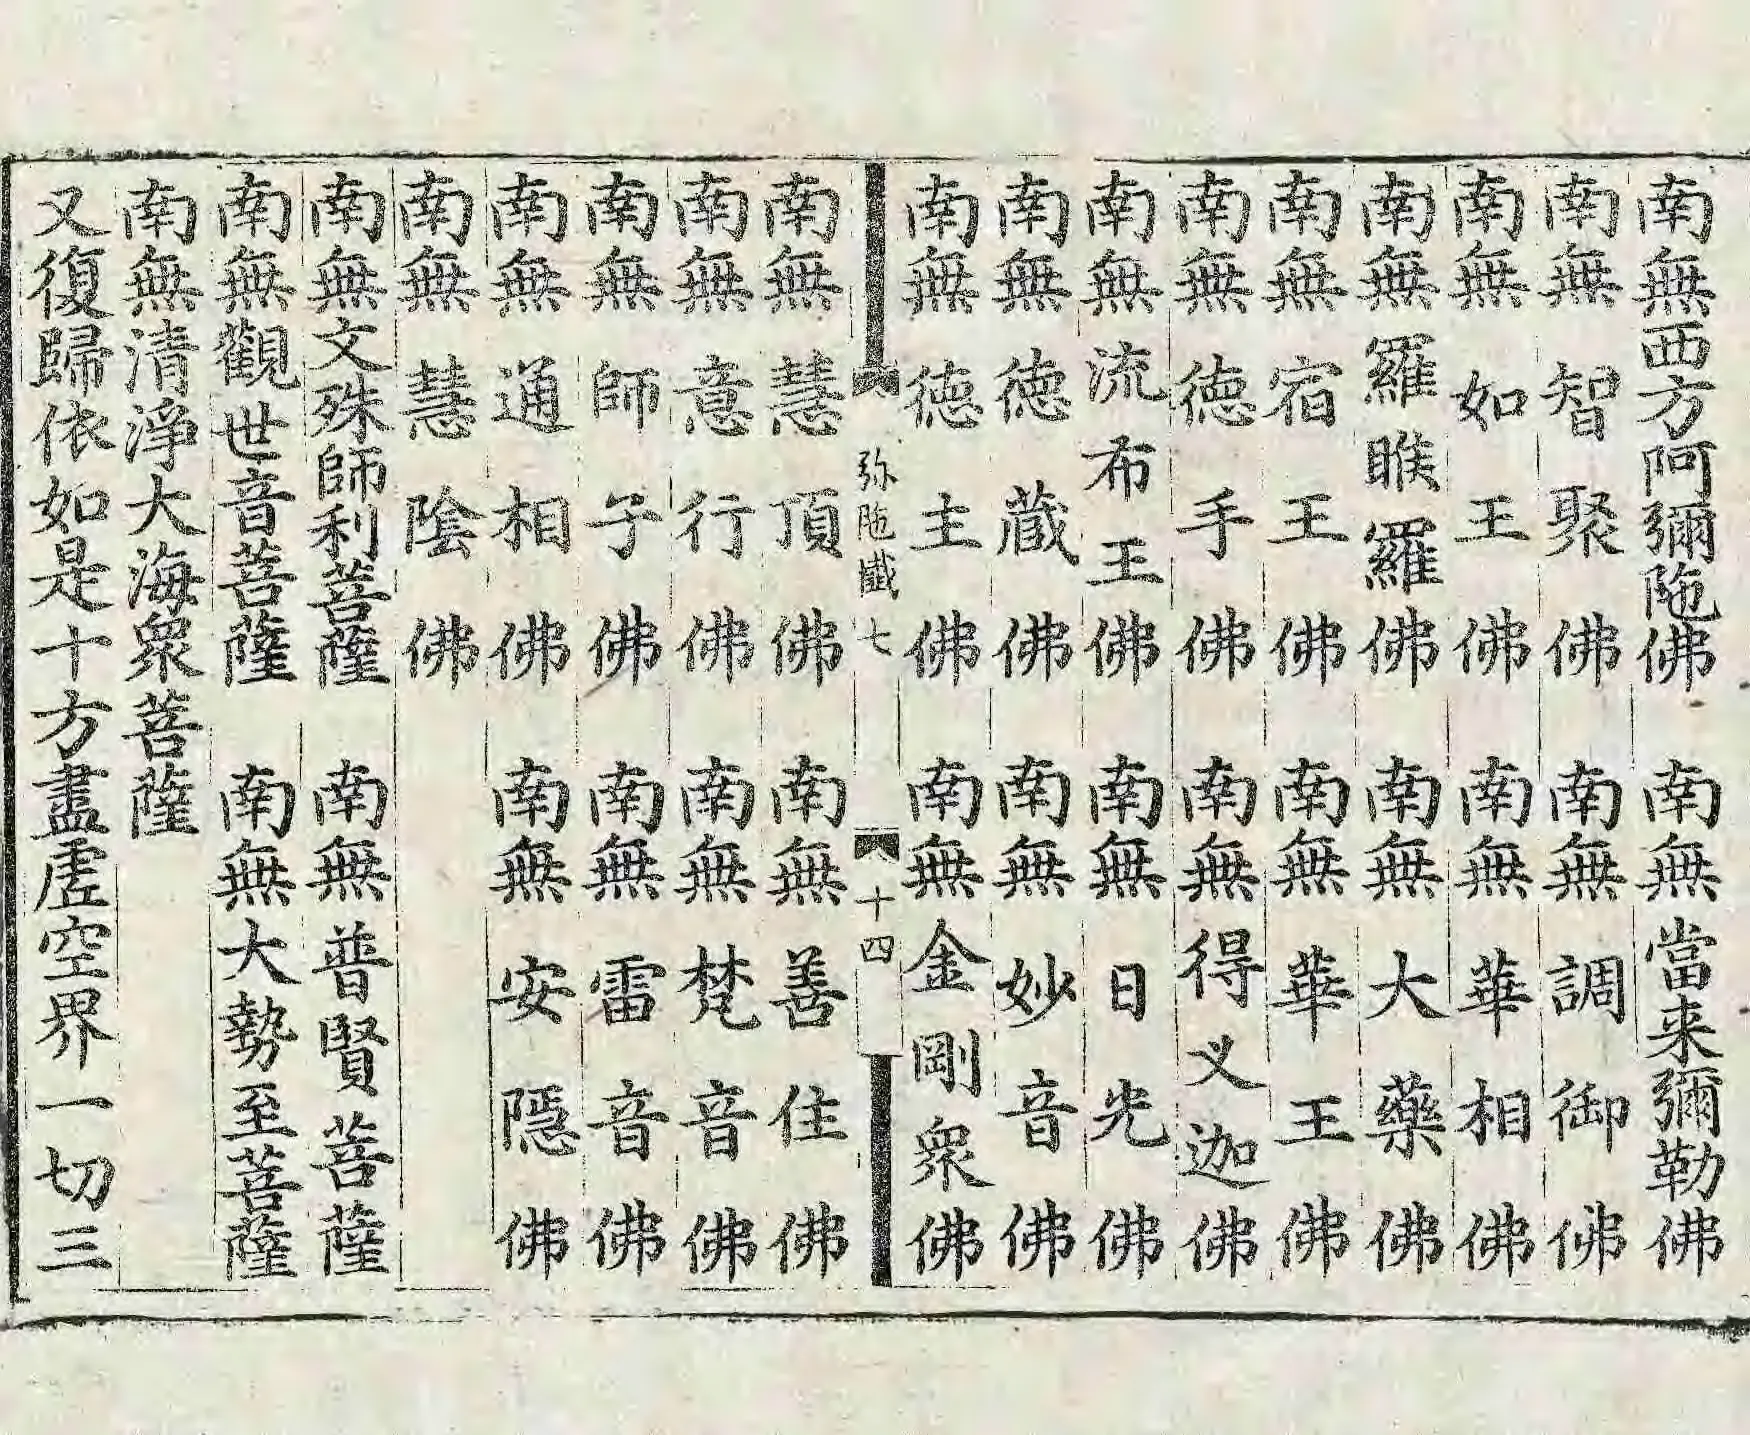 南無西方阿彌陁佛　南無當来彌勒佛
南無智聚佛　南無調御佛
南無如王佛　南無華相佛
南無羅睺羅佛　南無大藥佛
南無宿王佛　南無華王佛
南無德手佛　南無得义迦佛
南無流布王佛　南無日光佛
南無德蔵佛　南無妙音佛
南無德主佛　南無金剛衆佛
弥陁懺七　十四
南無慧頂佛　南無善住佛
南無意行佛　南無梵音佛
南無師子佛　南無雷音佛
南無通相佛　南無安隱佛
南無慧陰佛
南無文殊師利菩薩　南無普賢菩薩
南無觀世音菩薩　南無大勢至菩薩
南無清淨大海衆菩薩
又復歸依如是十方盡虗空界一切三